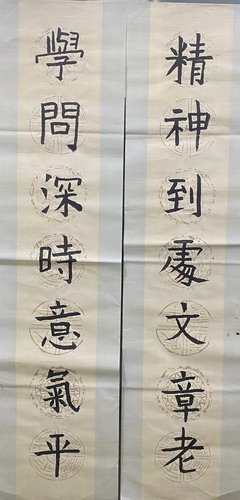 精神到處文章老
學問深時意氣平